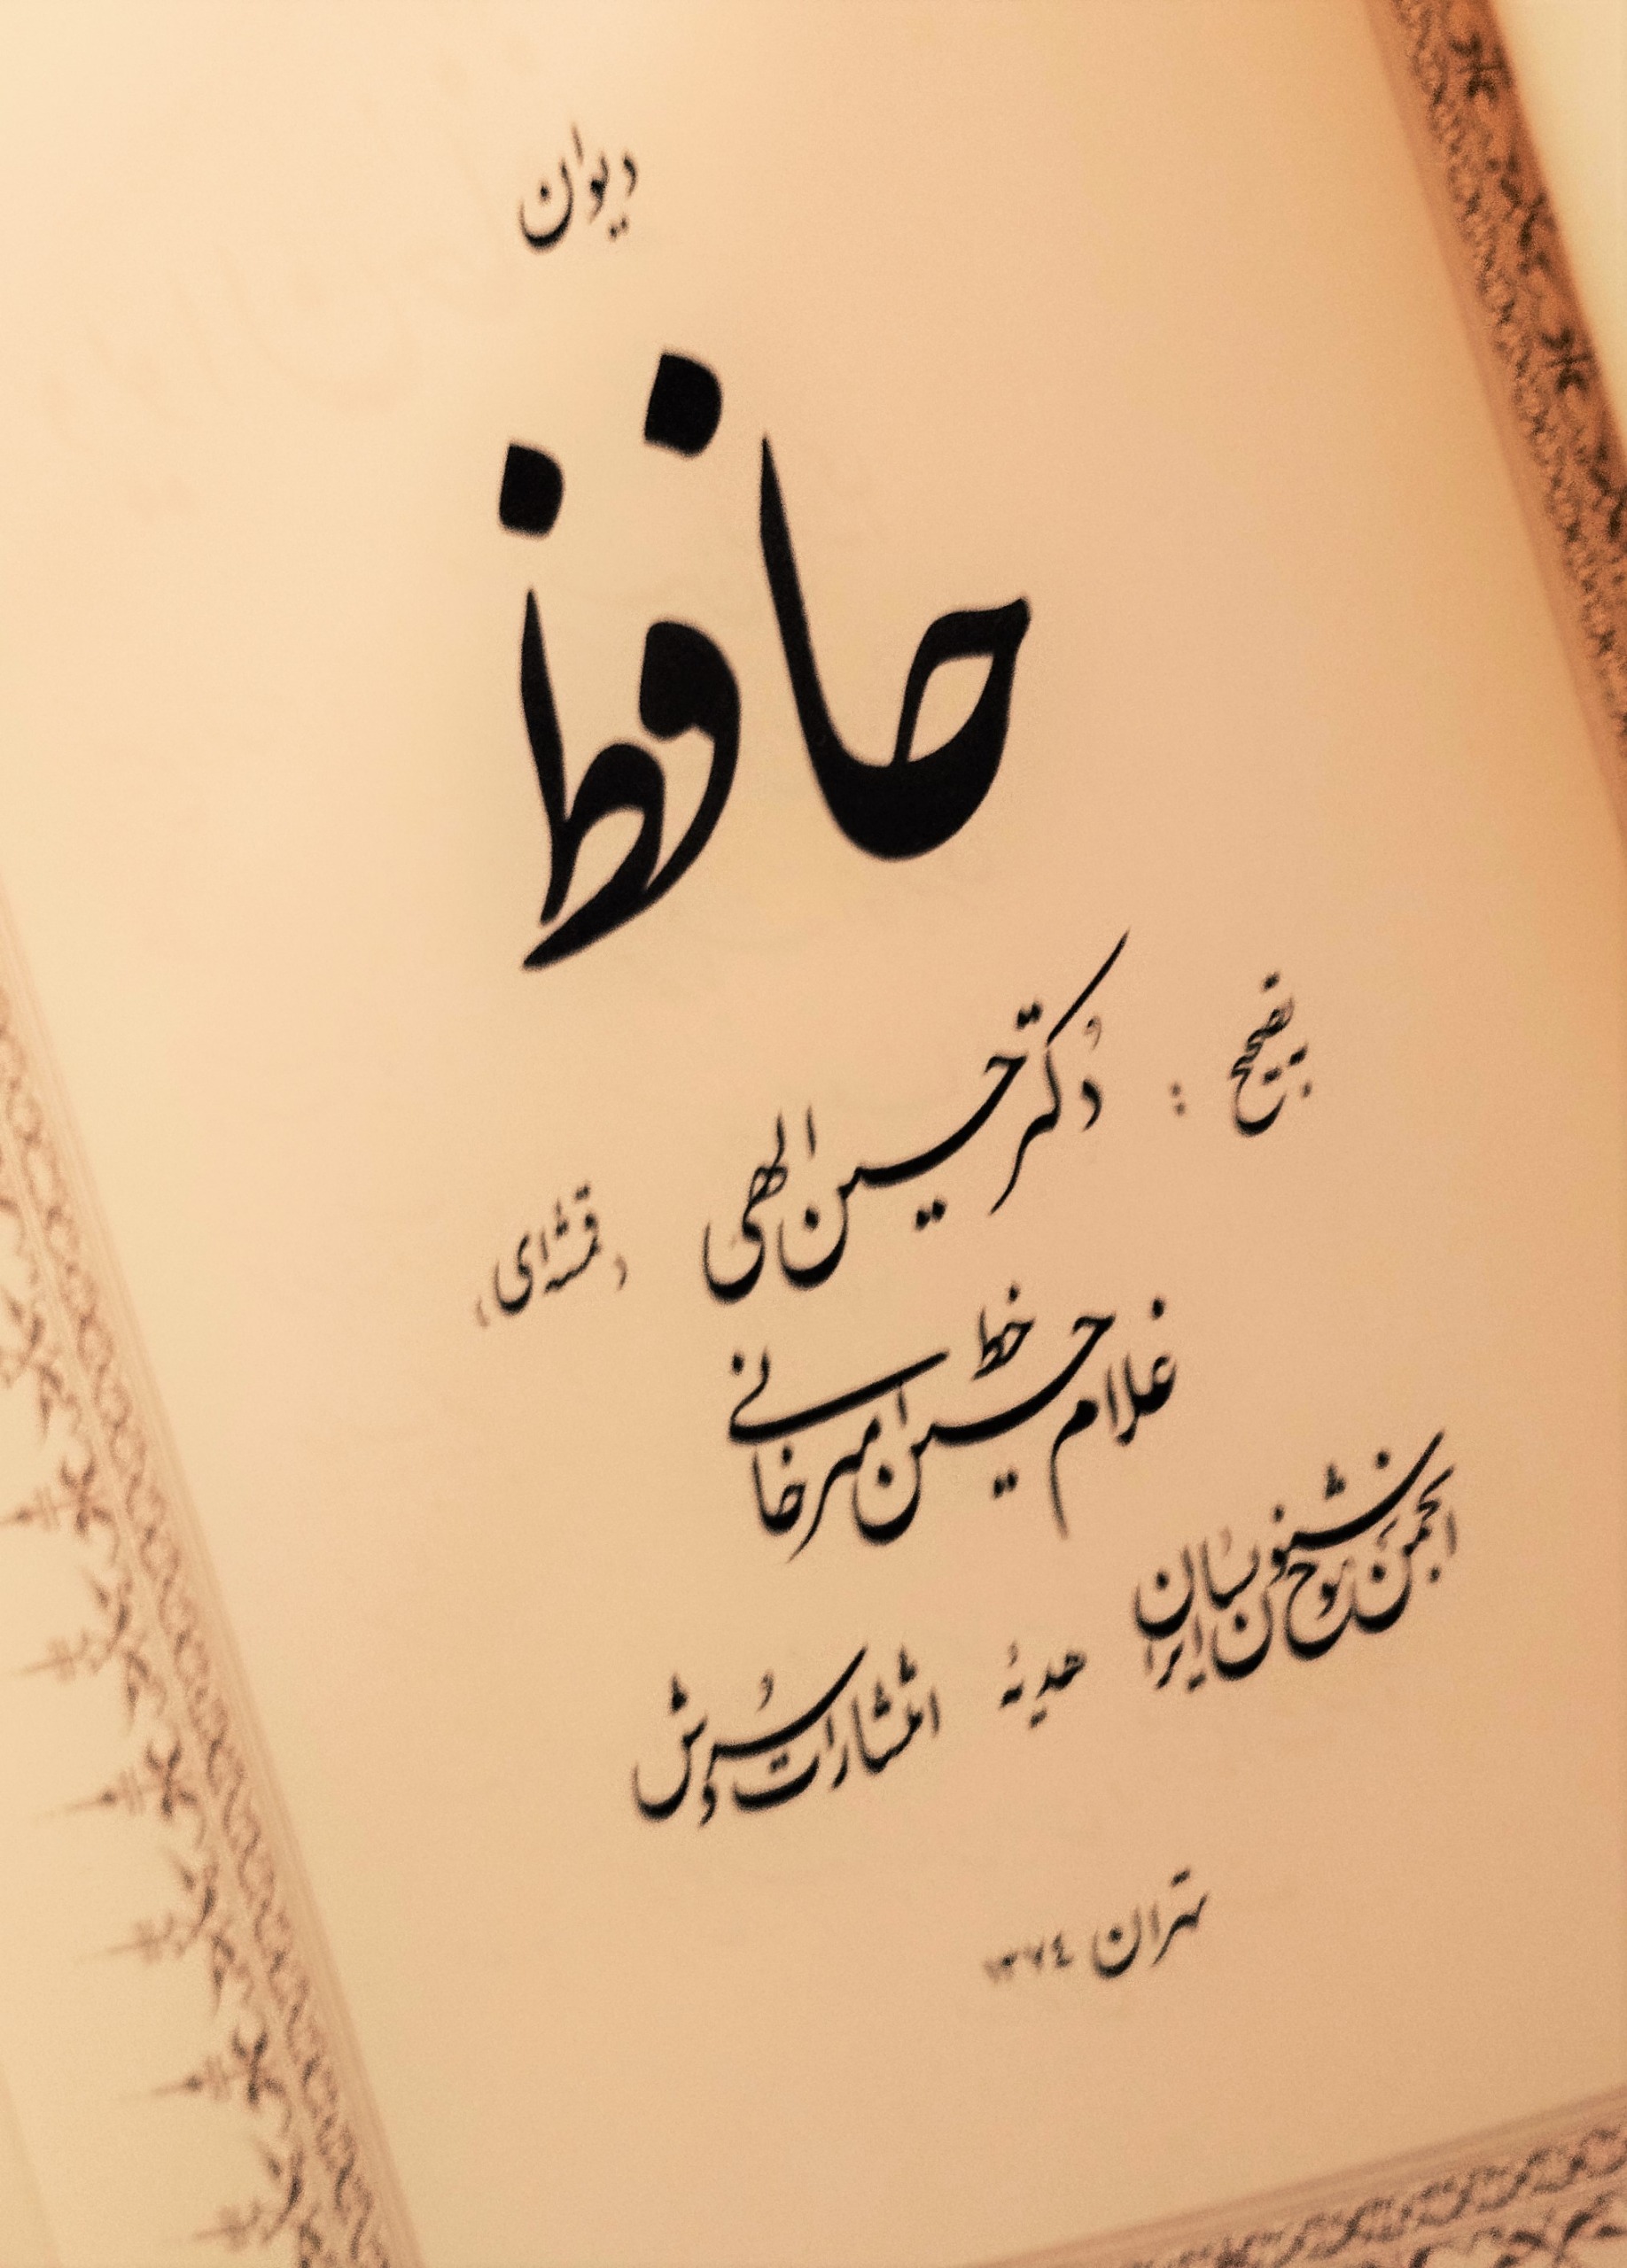 دیوان
حافظ
بتصحیح : دکتر حسین الهی (قمشه‌ای)
خط
غلامحسین امیرخانی
انجمن خوشنویسان ایران
هدیهٔ انتشارات سروش
تهران ۱۳۷٤